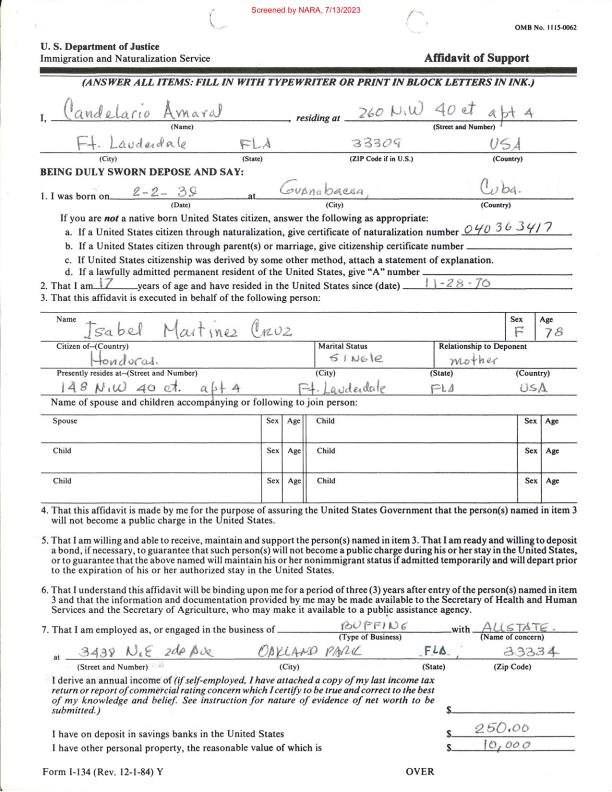 Screened by NARA, 7/13/2023
OMB No. 1115-0062
U. S. Department of Justice
Immigration and Naturalization Service Affidavit of Support
(ANSWER ALL ITEMS: FILL IN WITH TYPEWRITER OR PRINT IN BLOCK LETTERS IN INK.)
I, Candelario Amaral, residing at 260 N.W 40 ct apt 4
(Name) (Street and Number)
Ft. Lauderdale FLA 33309 USA
(City) (State) (ZIP Code if in U.S.) (Country)
BEING DULY SWORN DEPOSE AND SAY:
1. I was born on 2-2-38 at Guanabacoa, Cuba.
(Date) (City) (Country)
If you are not a native born United States citizen, answer the following as appropriate:
a. If a United States citizen through naturalization, give certificate of naturalization number 040363417
b. If a United States citizen through parent(s) or marriage, give citizenship certificate number
c. If United States citizenship was derived by some other method, attach a statement of explanation.
d. If a lawfully admitted permanent resident of the United States, give "A" number
2. That I am 17 years of age and have resided in the United States since (date) 11-28-70
3. That this affidavit is executed in behalf of the following person:
Name Sex Age
Isabel Martinez CRUZ F 78
Citizen of--(Country) Marital Status Relationship to Deponent
Honduras. SINGle mother
Presently resides at--(Street and Number) (City) (State) (Country)
148 N.W 40 ct. apt 4 Ft. Lauderdale FLA USA
Name of spouse and children accompanying or following to join person:
Spouse Sex Age Child Sex Age
Child Sex Age Child Sex Age
Child Sex Age Child Sex Age
4. That this affidavit is made by me for the purpose of assuring the United States Government that the person(s) named in item 3
will not become a public charge in the United States.
5. That I am willing and able to receive, maintain and support the person(s) named in item 3. That I am ready and willing to deposit
a bond, if necessary, to guarantee that such person(s) will not become a public charge during his or her stay in the United States,
or to guarantee that the above named will maintain his or her nonimmigrant status if admitted temporarily and will depart prior
to the expiration of his or her authorized stay in the United States.
6. That I understand this affidavit will be binding upon me for a period of three (3) years after entry of the person(s) named in item
3 and that the information and documentation provided by me may be made available to the Secretary of Health and Human
Services and the Secretary of Agriculture, who may make it available to a public assistance agency.
7. That I am employed as, or engaged in the business of BUFFING with ALLSTATE.
(Type of Business) (Name of concern)
at 3438 N.E 2do Ave OAKLAND PARK FLA. 33334
(Street and Number) (City) (State) (Zip Code)
I derive an annual income of (if self-employed, I have attached a copy of my last income tax
return or report of commercial rating concern which I certify to be true and correct to the best
of my knowledge and belief. See instruction for nature of evidence of net worth to be
submitted.) $
I have on deposit in savings banks in the United States $ 250.00
I have other personal property, the reasonable value of which is $ 10,000
Form I-134 (Rev. 12-1-84) Y OVER